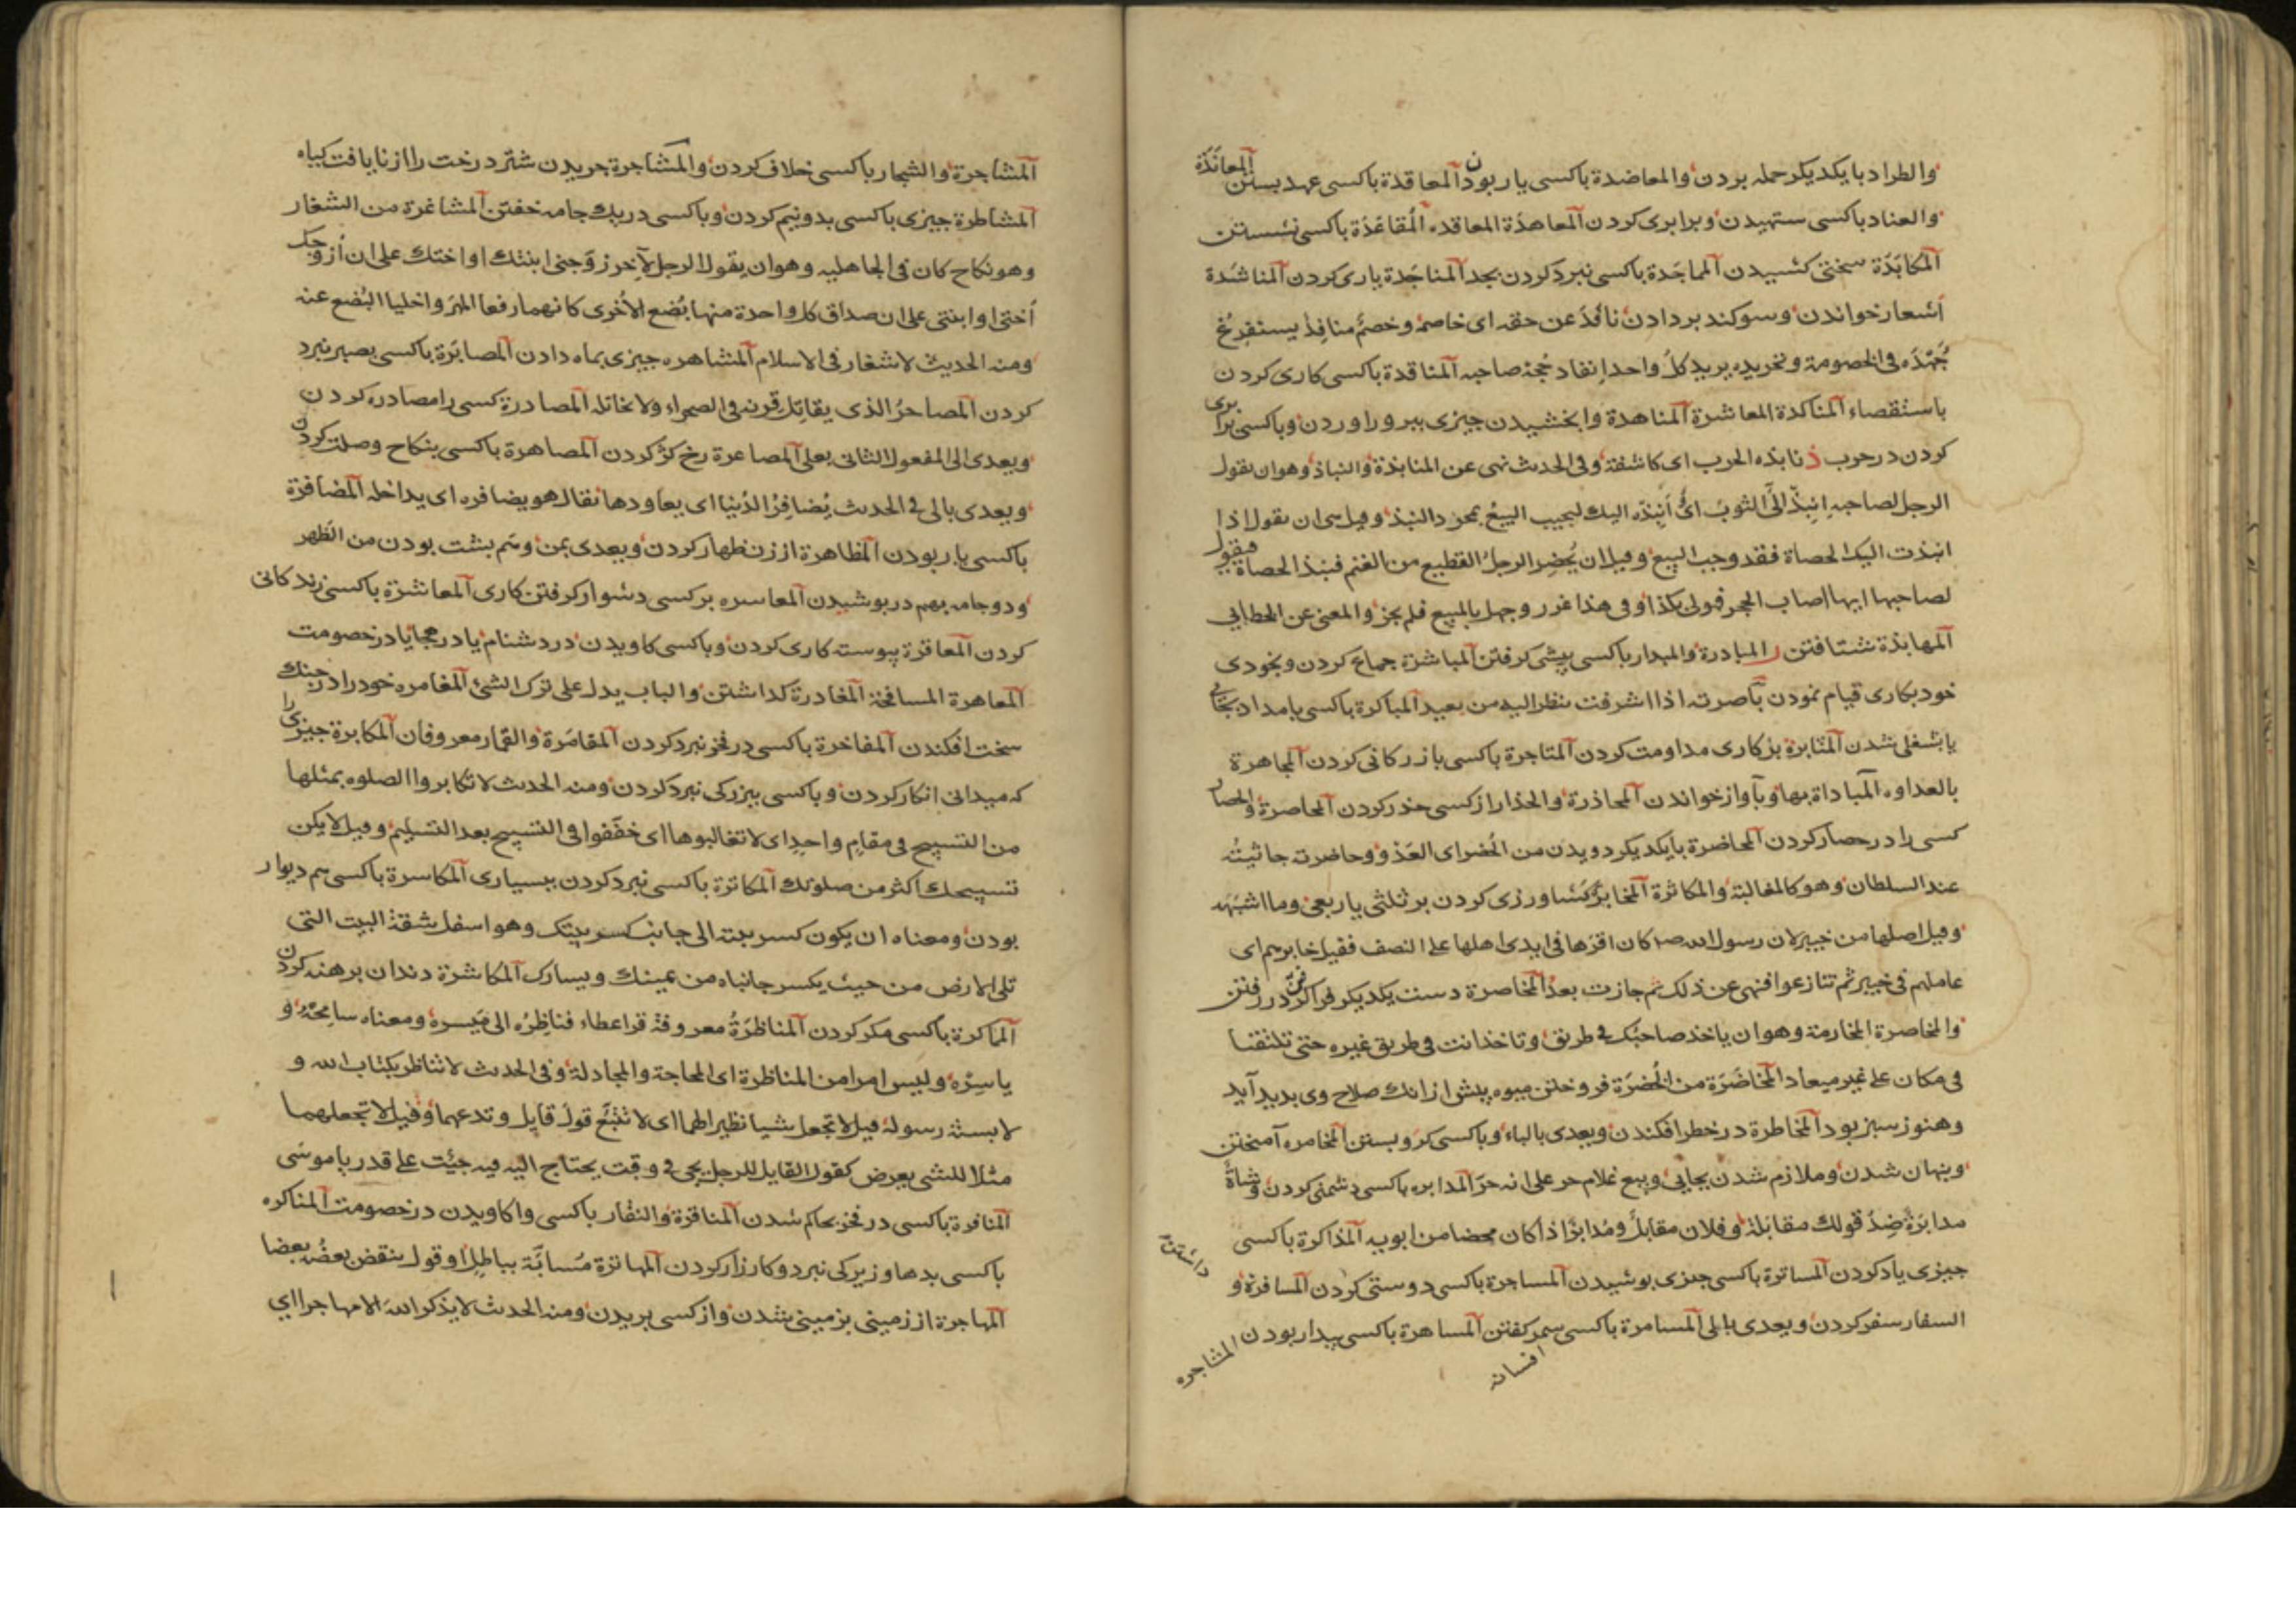 والطراد بایکدیکر حمله بردن والمعاضدة باکسی یار بودن المعاقدة باکسی عهد بستن المعاندة
والعناد باکسی ستهیدن وبرابری کردن المعاهدة المعاقده المقاعدة باکسی نشستن
المکابَدَة سختی کشیدن المماجَدة باکسی نبرد کردن بمجد المناجَدة یاری کردن المناشَدة
اشعار خواندن وسوکند بر دادن نافَدَ عن حقه ای خاصم وخصمٌ منافِدٌ یستفرغ
جُهْدَه فی الخصومة ونحریده یرید کل واحد إنفاد حُجة صاحبه المناقدة باکسی کاری کردن
باستقصاء المناکدة المعاشرة المناهدة وابخشیدن چیزی ببرور اوردن وباکسی برابری
کردن در حرب ذ نابذه الحرب ای کاشفة وفی الحدث نهی عن المنابذة والنباذ وهو ان یقول
الرجل لصاحبه انبِذْ الیَّ الثوبَ اوْ أَنبِذُه الیك لیجب البیعُ بمجرد النبذ وقیل هی ان یقول اذا
انبذت الیک الحصاة فقد وجب البیع وقیل ان یُحضِر الرجل القطیع من الغنم فینبذ الحصاة فیقول
لصاحبها ایها اصاب الحجر فهو لی بکذا وفی هذا غرر وجهل بالمبیع فلم یجز والمعنی عن الخطابی
المهابذة شتافتن ر المبادرة والبدار باکسی پیشی کرفتن المباشرة جماع کردن وبخودی
خود بکاری قیام نمودن باصرته اذا اشرفت ینظر الیه من بعید المباکرة باکسی بامداد بجایی
یا بشغلی شدن المثابرة بر کاری مداومت کردن المتاجرة باکسی بازرکانی کردن المجاهرة
بالعداوه المباداة بها وبآواز خواندن المحاذرة والحذار از کسی حذر کردن المحاصرة والحصار
کسی را در حصار کردن المحاضرة بایکدیکر دویدن من الحُضر ای العَدْو وحاضرته جاثیتُه
عند السلطان وهو کالمغالبة والمکاثرة المخابرة کشاورزی کردن بر ثلثی یا ربعی وما اشبَهَه
وقیل اصلها من خیبر لان رسول الله صم کان اقرها فی ایدی اهلها علی النصف فقیل خابرهم ای
عاملهم فی خیبر ثم تنازعوا فنهی عن ذلک ثم جازت بعدُ المخاصرة دست یکدیکر فرا کرفتن در رفتن
والمخاصرة المخارمة وهو ان یاخذ صاحبُک فی طریق وتاخذ انت فی طریق غیره حتی تلتقیا
فی مکان علی غیر میعاد المخاضَرَة من الخُضرَة فروختن میوه پیش از انک صلاح وی بدید آید
وهنوز سبز بود المخاطرة در خطر افکندن ویعدی بالباء وباکسی کرو بستن المخامره آمیختن
وپنهان شدن وملازم شدن بجایی وبیع غلام حر علی انه حر المدابره باکسی دشمنی کردن وشاةٌ
مدابَرةٌ ضِدُّ قولك مقابَلة وفلان مقابلٌ ومُدابرٌ اذا کان محضا من ابویه المذاکرة باکسی
چیزی یاد کردن المساترة باکسی چیزی پوشیدن المساجرة باکسی دوستی کردن المسافرة و داشتن
السفار سفر کردن ویعدی بالی المسامرة باکسی سمر کفتن المساهرة باکسی بیدار بودن المشاجره
افسانه
المشاجرة والشجار باکسی خلاف کردن والمشاجرة چریدن شتر درخت را از نایافت کیاه
المشاطرة چیزی باکسی بدو نیم کردن وباکسی در یك جامه خفتن المشاغرة من الشغار
وهو نکاح کان فی الجاهلیه وهو ان یقول الرجل لآخر زوّجنی ابنتك او اختك علی ان أزوجك
أختی او ابنتی علی ان صداق کل واحدة منهما بُضع الأخری کانهما رفعا المهر واخلیا البُضع عنه
ومنه الحدیث لا شغار فی الاسلام المشاهره چیزی بماه دادن المصابَرة باکسی بصبر نبرد
کردن المصاحرُ الذی یقاتل قِرنه فی الصحراء ولا یخاتله المصادرة کسی را مصادره کردن
ویعدی الی المفعول الثانی بعلی المصاعرة رخ کژ کردن المصاهرة باکسی بنکاح وصلت کردن
ویعدی بالی فی الحدث یُضافِزُ الدُنیا ای یعاودها یقال هو یضافره ای یداخله المضافرة
باکسی یار بودن المظاهرة از زن ظهار کردن ویعدی بمن وهم پشت بودن من الظهر
ودو جامه بهم در پوشیدن المعاسره بر کسی دشوار کرفتن کاری المعاشرَة باکسی زندکانی
کردن المعاقرة پیوسته کاری کردن وباکسی کاویدن در دشنام یا در هجا یا در خصومت
المعاهرة المسافحة المغادرة کداشتن والباب یدل علی ترک الشئ المغامره خود را در جنك
سخت افکندن المفاخرة باکسی در فخر نبرد کردن المقامَرة والقمار معروفان المکابرة چیزی را
که میدانی انکار کردن وباکسی ببزرکی نبرد کردن ومنه الحدث لا تکابروا الصلوه بمثلها
من التسبیح فی مقامٍ واحدٍ ای لا تغالبوها ای خفّفوا فی التسبیح بعد التسلیم وقیل لا یکن
تسبیحك اکثر من صلوتك المکاثرة باکسی نبرد کردن ببسیاری المکاسرة باکسی هم دیوار
بودن ومعناه ان یکون کسر بیته الی جانب کسر بیتک وهو اسفل شقة البیت التی
تلی الارض من حیث یکسر جانباه من یمینك ویسارک المکاشرة دندان برهنه کردن
المماکرة باکسی مکر کردن المناظَرَةُ معروفة قرا عطاء فناظِرُه الی میسره ومعناه سامِحْهُ و
یاسِرْه ولیس امرا من المناظرة ای المحاجة والمجادلة وفی الحدث لا تناظر بکتاب الله و
لا بسنة رسوله قیل لا تجعل شیا نظیرا لهما ای لا تتَّبع قولَ قایل وتدعهما وقیل لا تجعلهما
مثلا للشی یعرض کقول القایل للرجل یجی فی وقت یحتاج الیه فیه جِئتَ علی قدر یا موسی
المنافرة باکسی در فخر بحاکم شدن المناقرة والنقار باکسی واکاویدن در خصومت المناکره
باکسی بدها وزیرکی نبرد وکارزار کردن المهاترة مُسابَّة بباطل او قول ینقض بعضُه بعضا
المهاجرة از زمینی بزمینی شدن واز کسی بریدن ومنه الحدث لا یذکر الله الا مهاجرا ای